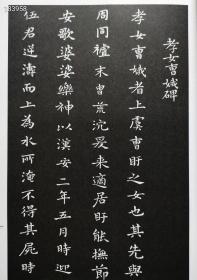 783958
孝女曹娥碑
孝女曹娥者上虞曹盱之女也其先與
周同祖末胄荒沉爰来適居盱能撫節
安歌婆娑樂神以漢安二年五月時迎
伍君逆濤而上為水所淹不得其屍時